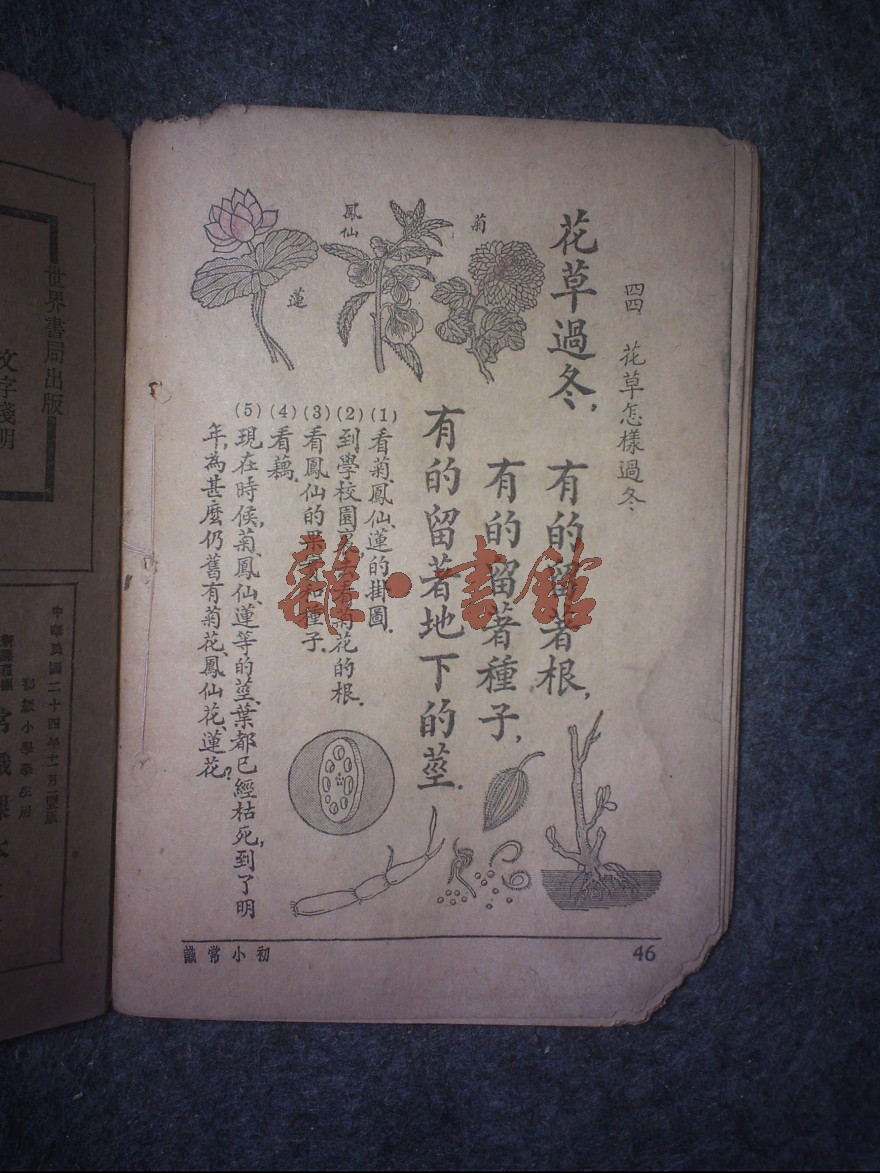 四四 花草怎樣過冬
花草過冬，
有的留着根，
有的留着種子，
有的留着地下的莖．
菊
鳳仙
蓮
(1)看菊、鳳仙、蓮的掛圖．
(2)到學校園裏去看菊花的根．
(3)看鳳仙的果實和種子．
(4)看藕．
(5)現在時候，菊、鳳仙、蓮等的莖、葉都已經枯死，到了明
年，為甚麼仍舊有菊花、鳳仙花、蓮花？
初小常識
46
雜·書館
世界書局出版
文字淺明
中華民國二十四年十一月
初級小學學生用
常識課本